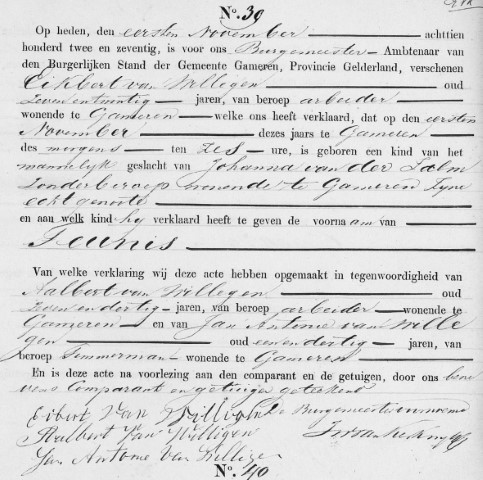 No. 39
Op heden, den eersten November achttien
honderd twee en zeventig, is voor ons Burgemeester Ambtenaar van
den Burgerlijken Stand der Gemeente Gameren, Provincie Gelderland, verschenen
Eikbert van Willigen oud
Zeven en twintig jaren, van beroep arbeider
wonende te Gameren welke ons heeft verklaard, dat op den eersten
November dezes jaars te Gameren
des morgens ten zes ure, is geboren een kind van het
mannelijk geslacht van Johanna van der Zalm
zonder beroep wonende te Gameren zyne
echtgenoote
en aan welk kind hy verklaard heeft te geven de voornaam van
Teunis
Van welke verklaring wij deze acte hebben opgemaakt in tegenwoordigheid van
Aalbert van Willegen oud
Zeven en dertig jaren, van beroep arbeider wonende te
Gameren en van Jan Antonie van Wille
gen oud een en dertig jaren, van
beroep Timmerman wonende te Gameren
En is deze acte na voorlezing aan den comparant en de getuigen, door ons bene
vens Comparant en getuigen geteekend
Eibert Van Willigen De Burgemeester voornoemd
Aalbert Van Willigen
Jan Antonie Van Willigen
No. 40